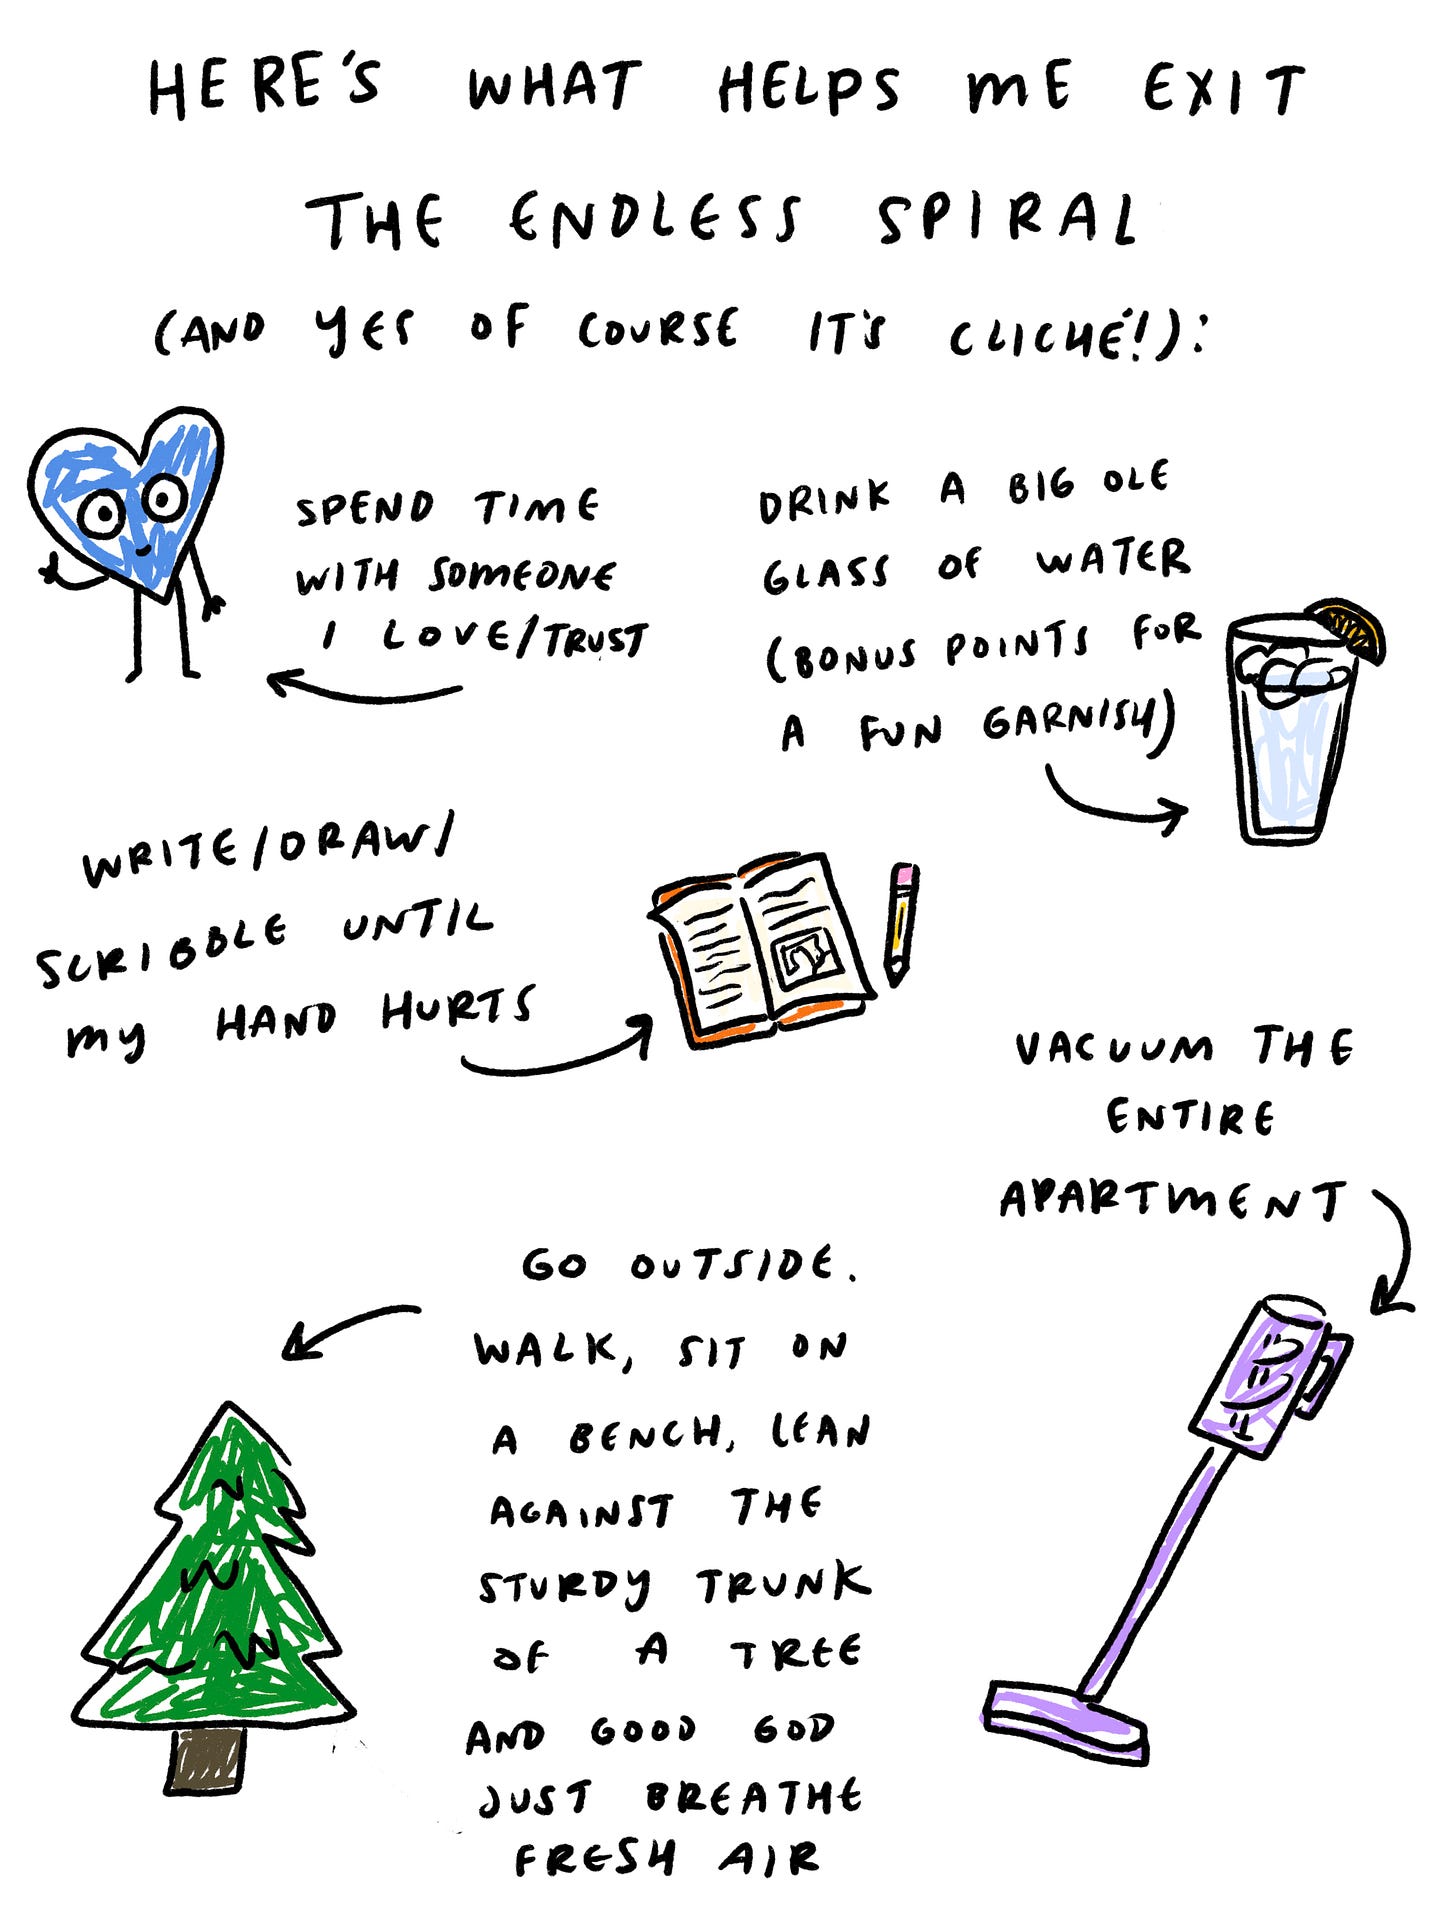 HERE'S WHAT HELPS ME EXIT
THE ENDLESS SPIRAL
(AND YES OF COURSE IT'S CLICHÉ!):
SPEND TIME
WITH SOMEONE
I LOVE/TRUST
DRINK A BIG OLE
GLASS OF WATER
(BONUS POINTS FOR
A FUN GARNISH)
WRITE/DRAW/
SCRIBBLE UNTIL
MY HAND HURTS
VACUUM THE
ENTIRE
APARTMENT
GO OUTSIDE.
WALK, SIT ON
A BENCH, LEAN
AGAINST THE
STURDY TRUNK
OF A TREE
AND GOOD GOD
JUST BREATHE
FRESH AIR